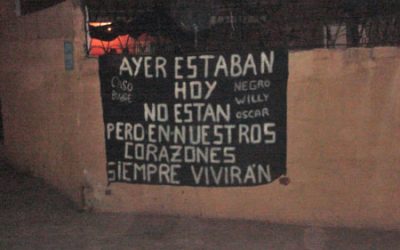 AYER ESTABAN
HOY
NO ESTAN
PERO EN NUESTROS
CORAZONES
SIEMPRE VIVIRÁN
NEGRO
WILLY
OSCAR